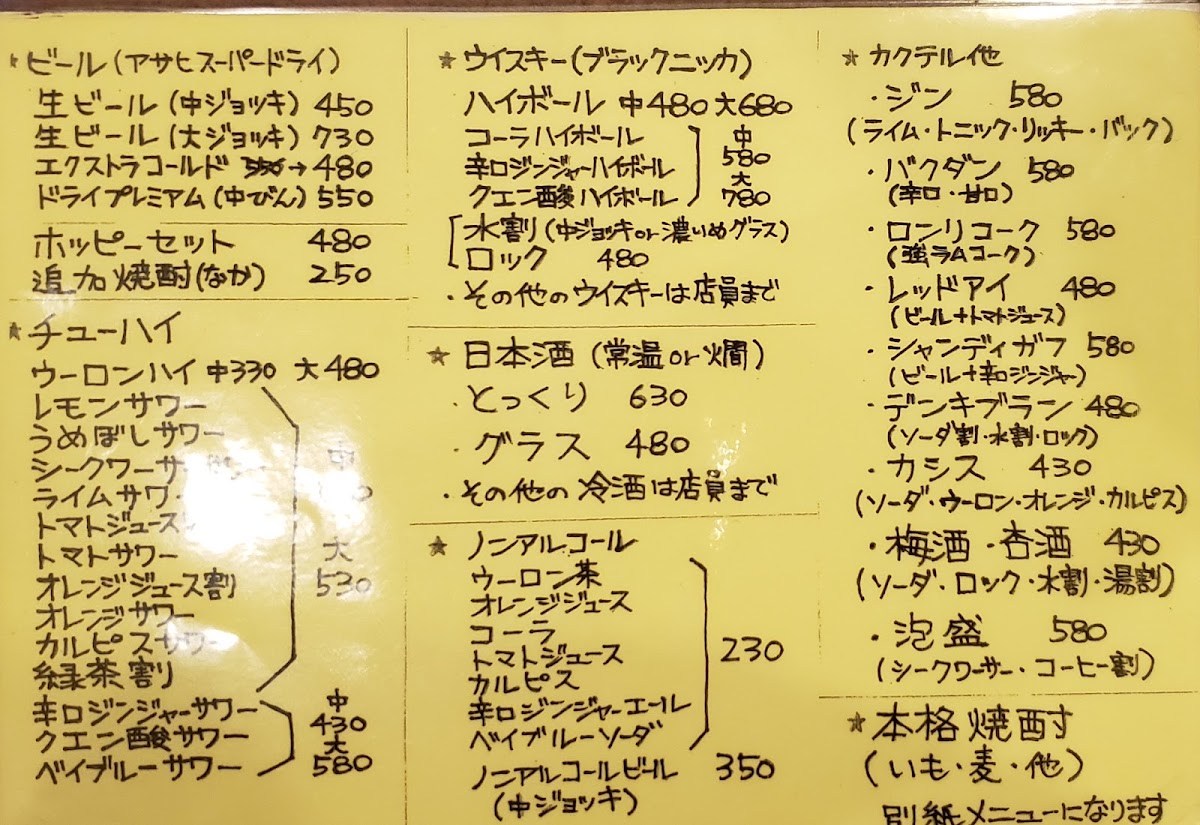 ★ビール(アサヒスーパードライ)
生ビール(中ジョッキ) 450
生ビール(大ジョッキ) 730
エクストラコールド 550→480
ドライプレミアム(中びん) 550
ホッピーセット 480
追加焼酎(なか) 250
★チューハイ
ウーロンハイ 中330 大480
レモンサワー
うめぼしサワー
シークワーサー
ライムサワ
トマトジュース
トマトサワー
オレンジジュース割
オレンジサワー
カルピスサワー
緑茶割
中
大
530
辛口ジンジャーサワー
クエン酸サワー
ベイブルーサワー
中
430
大
580
★ウイスキー(ブラックニッカ)
ハイボール 中480 大680
コーラハイボール
辛口ジンジャーハイボール
クエン酸ハイボール
中
580
大
780
水割(中ジョッキor濃いめグラス)
ロック 480
・その他のウイスキーは店員まで
★日本酒(常温or燗)
・とっくり 630
・グラス 480
・その他の冷酒は店員まで
★ノンアルコール
ウーロン茶
オレンジジュース
コーラ
トマトジュース
カルピス
辛口ジンジャーエール
ベイブルーソーダ
230
ノンアルコールビール 350
(中ジョッキ)
★カクテル他
・ジン 580
(ライム・トニック・リッキー・バック)
・バクダン 580
(辛口・甘口)
・ロンリコーク 580
(強ラムコーク)
・レッドアイ 480
(ビール+トマトジュース)
・シャンディガフ 580
(ビール+辛口ジンジャー)
・デンキブラン 480
(ソーダ割・水割・ロック)
・カシス 430
(ソーダ・ウーロン・オレンジ・カルピス)
・梅酒・杏酒 430
(ソーダ・ロック・水割・湯割)
・泡盛 580
(シークワーサー・コーヒー割)
★本格焼酎
(いも・麦・他)
別紙メニューになります